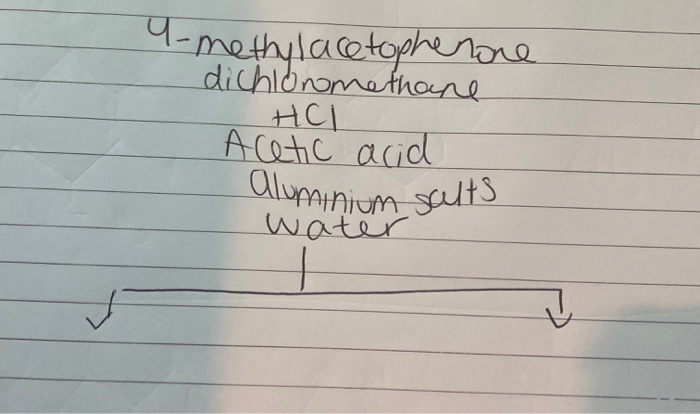 4-methylacetophenone
dichloromethane
HCl
Acetic acid
aluminium salts
water